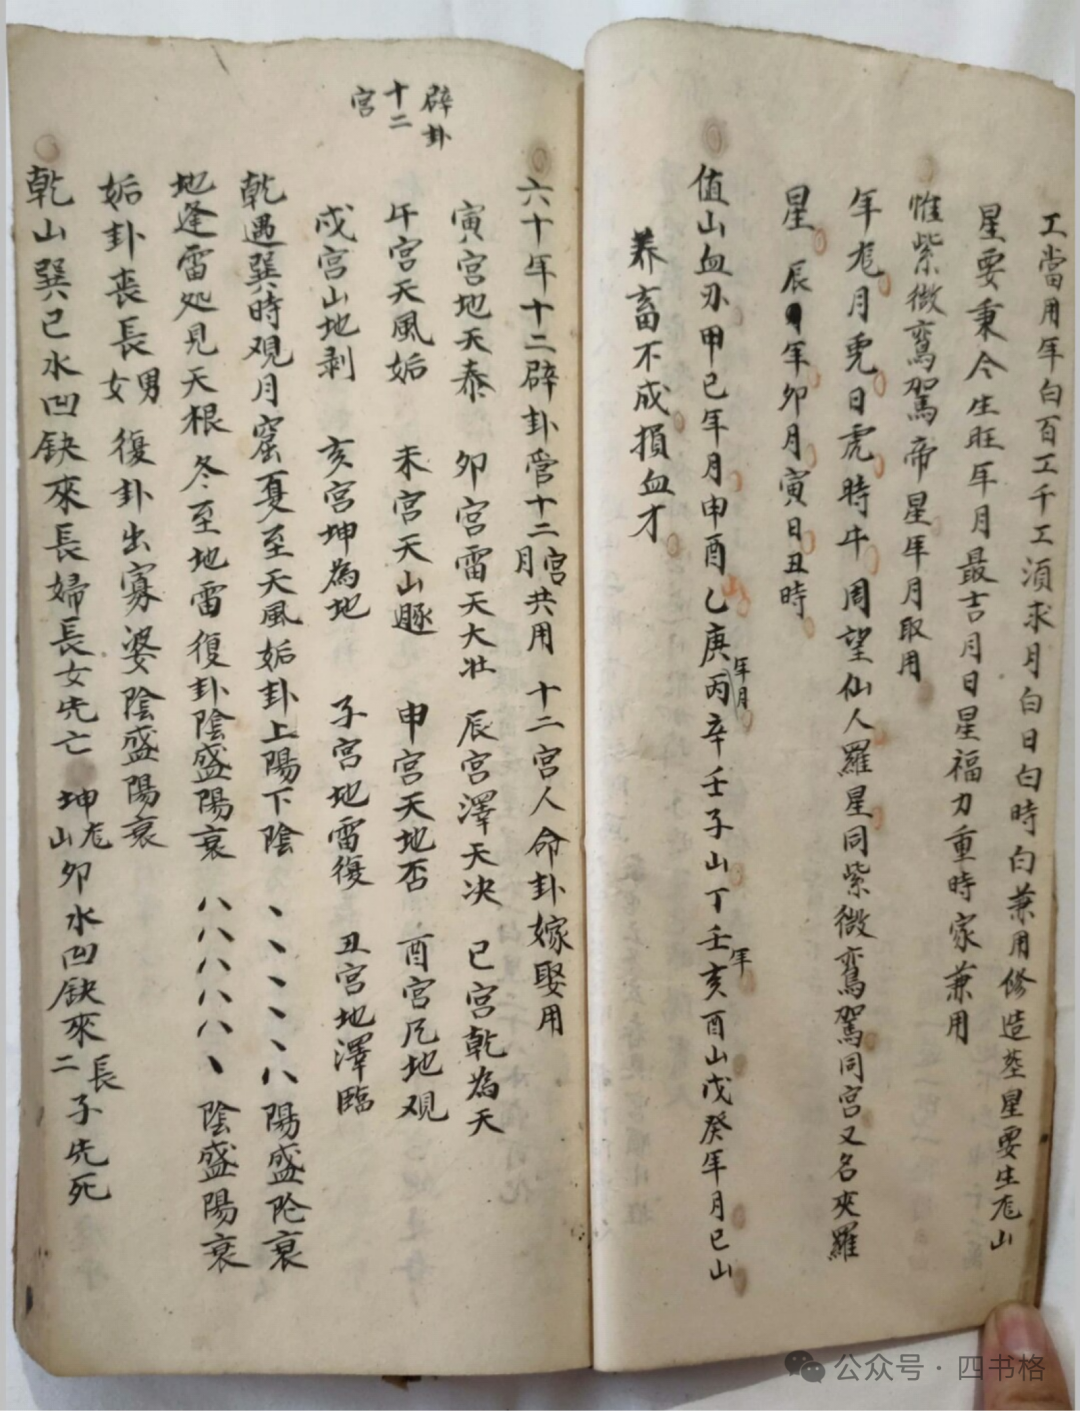 工當用年白百工千工須求月白日白時白兼用修造塟星要生尨山
星要秉令生旺年月最吉月日星福力重時家兼用
惟紫微鸞駕帝星年月取用
年尨月兎日虎時牛周望仙人羅星同紫微鸞駕同宮又名夾羅
星 辰年卯月寅日丑時
值山血刃甲己年月申酉乙庚丙年月辛壬子山丁壬年亥酉山戊癸年月巳山
养畜不成損血才
辟卦
十二
宮
六十年十二辟卦管十二宮月共用 十二宮人命卦嫁娶用
寅宮地天泰 卯宮雷天大壯 辰宮澤天决 巳宮乾為天
午宮天風姤 未宮天山遯 申宮天地否 酉宮風地观
戍宮山地剥 亥宮坤為地 子宮地雷復 丑宮地澤臨
乾遇巽時观月窟夏至天風姤卦上陽下陰 丶丶丶丶丶八陽盛陰衰
地逢雷処見天根冬至地雷復卦陰盛陽衰 八八八八八丶 陰盛陽衰
姤卦丧長男女 復卦出寡婆陰盛陽衰
乾山巽巳水凹缺來長婦長女先亡 坤山尨卯水凹缺來長二子先死
公众号·四书格